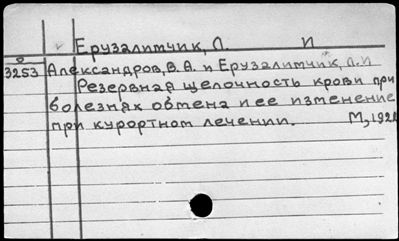 Ерузалимчик, Л. И
3253 Александров, В. А. и Ерузалимчик, Л. И
Резервная щелочность крови при
болезнях обмена и ее изменение
при курортном лечении. М,